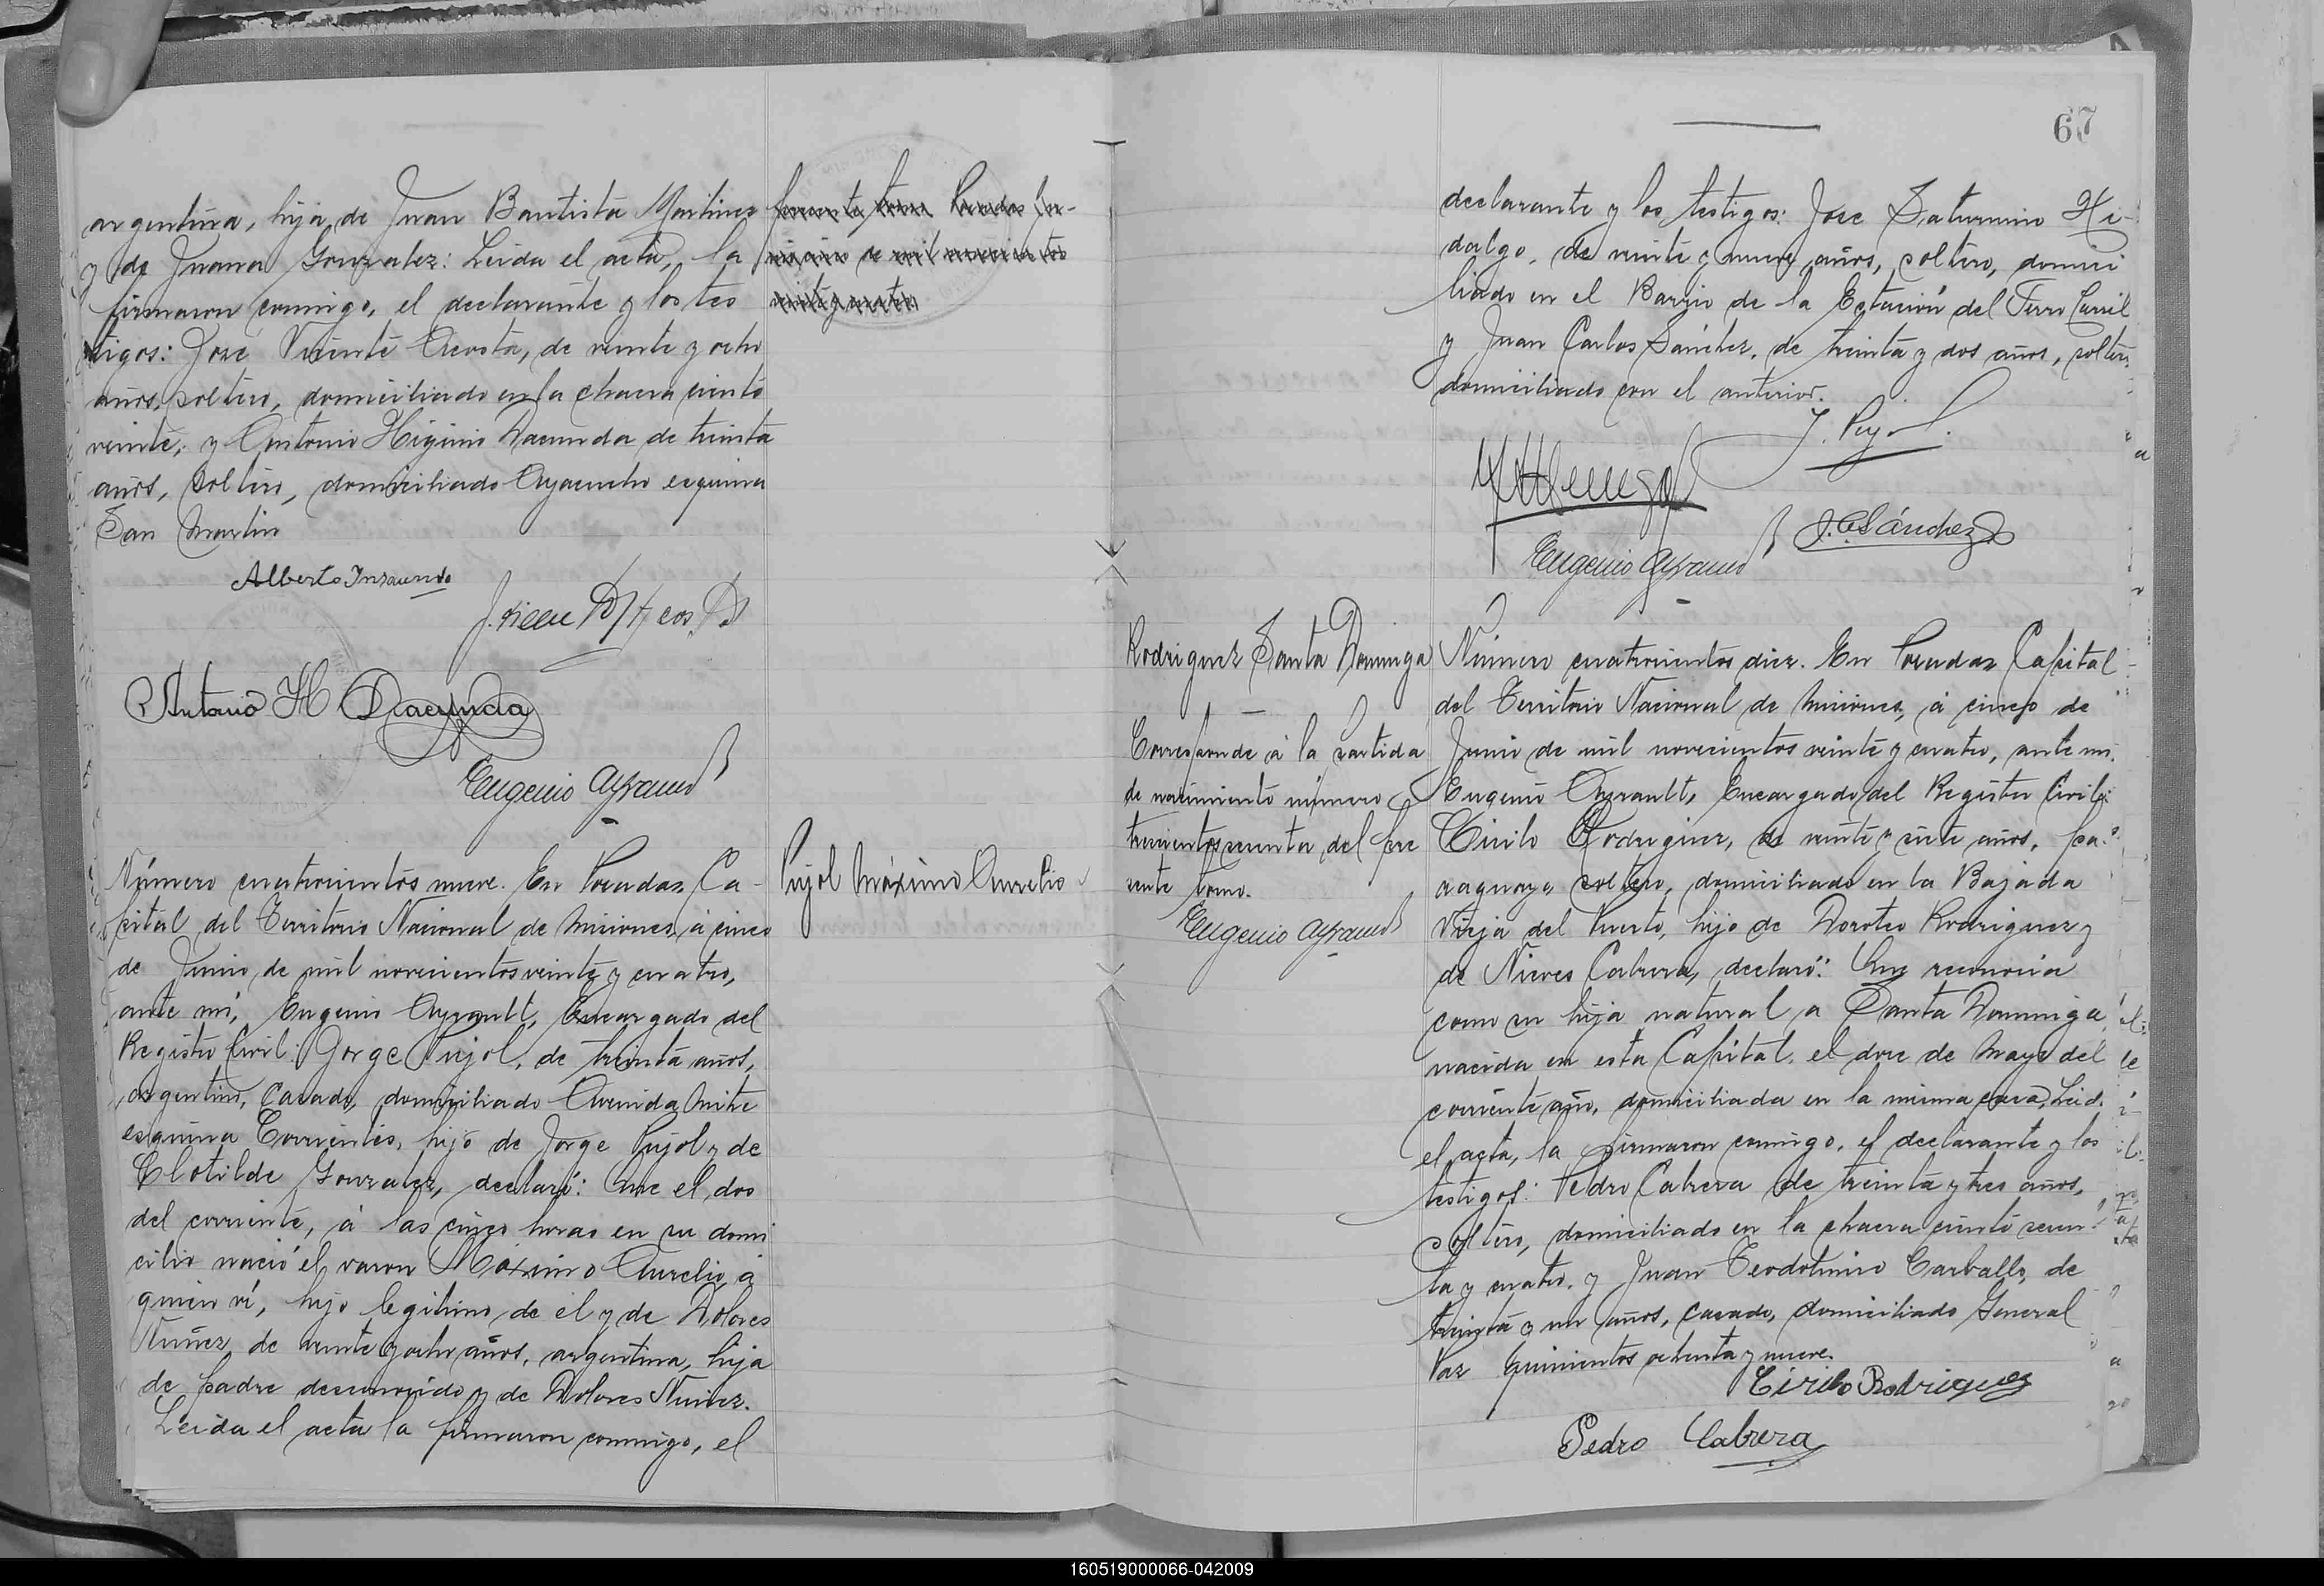 argentina, hija de Juan Bautista Martinez
y de Juana Gonzalez: Leida el acta, la
firmaron conmigo, el declarante y los tes
tigos: José Vicente Acosta, de veinte y ocho
años, soltero, domiciliado en la chacra ciento
veinte, y Antonio Higinio Dacunda de treinta
años, soltero, domiciliado Ayacucho esquina
San Martin
Alberto Insaurralde
Antonio H Dacunda
Eugenio Ayrault
Número cuatrocientos nueve. En Posadas, Ca-
pital del Territorio Nacional de Misiones, á cinco
de Junio de mil novecientos veinte y cuatro,
ante mí, Eugenio Ayrault, Encargado del
Registro Civil: Jorge Pujol, de treinta años,
argentino, casado, domiciliado Avenida Mitre
esquina Corrientes, hijo de Jorge Pujol y de
Clotilde Gonzalez, declaró: Que el dos
del corriente, á las cinco horas en su domi
cilio nació el varon Máximo Aurelio, á
quien ví, hijo legítimo de él y de Dolores
Nuñez, de veinte y ocho años, argentina, hija
de padre desconocido y de Dolores Nuñez.
Leida el acta la firmaron conmigo, el
Pujol Máximo Aurelio
67
declarante y los testigos: José Saturnino Hi-
dalgo, de veinte y nueve años, soltero, domici
liado en el Barrio de la Estación del Ferro Carril
y Juan Carlos Sánchez, de treinta y dos años, soltero
domiciliado con el anterior.
J. Pujol
J.C. Sánchez
Eugenio Ayrault
Rodriguez Santa Dominga
Corresponde á la partida
de nacimiento número
trescientos sesenta, del pre
sente tomo.
Eugenio Ayrault
Número cuatrocientos diez. En Posadas Capital
del Territorio Nacional de Misiones, á cinco de
Junio de mil novecientos veinte y cuatro, ante mi,
Eugenio Ayrault, Encargado del Registro Civil:
Cirilo Rodriguez, de veinte y siete años, pa-
raguayo, soltero, domiciliado en la Bajada
Vieja del Puerto, hijo de Doroteo Rodriguez y
de Nieves Cabrera, declaró: Que reconocía
como su hija natural a Santa Dominga,
nacida en esta Capital, el doce de Mayo del
corriente año, domiciliada en la misma casa, Leida
el acta, la firmaron conmigo, el declarante y los
testigos: Pedro Cabrera de treinta y tres años,
soltero, domiciliado en la chacra ciento sesen-
ta y cuatro, y Juan Teodolmiro Carballo, de
treinta y un años, casado, domiciliado General
Paz quinientos ochenta y nueve.
Cirilo Rodriguez
Pedro Cabrera
160519000066-042009